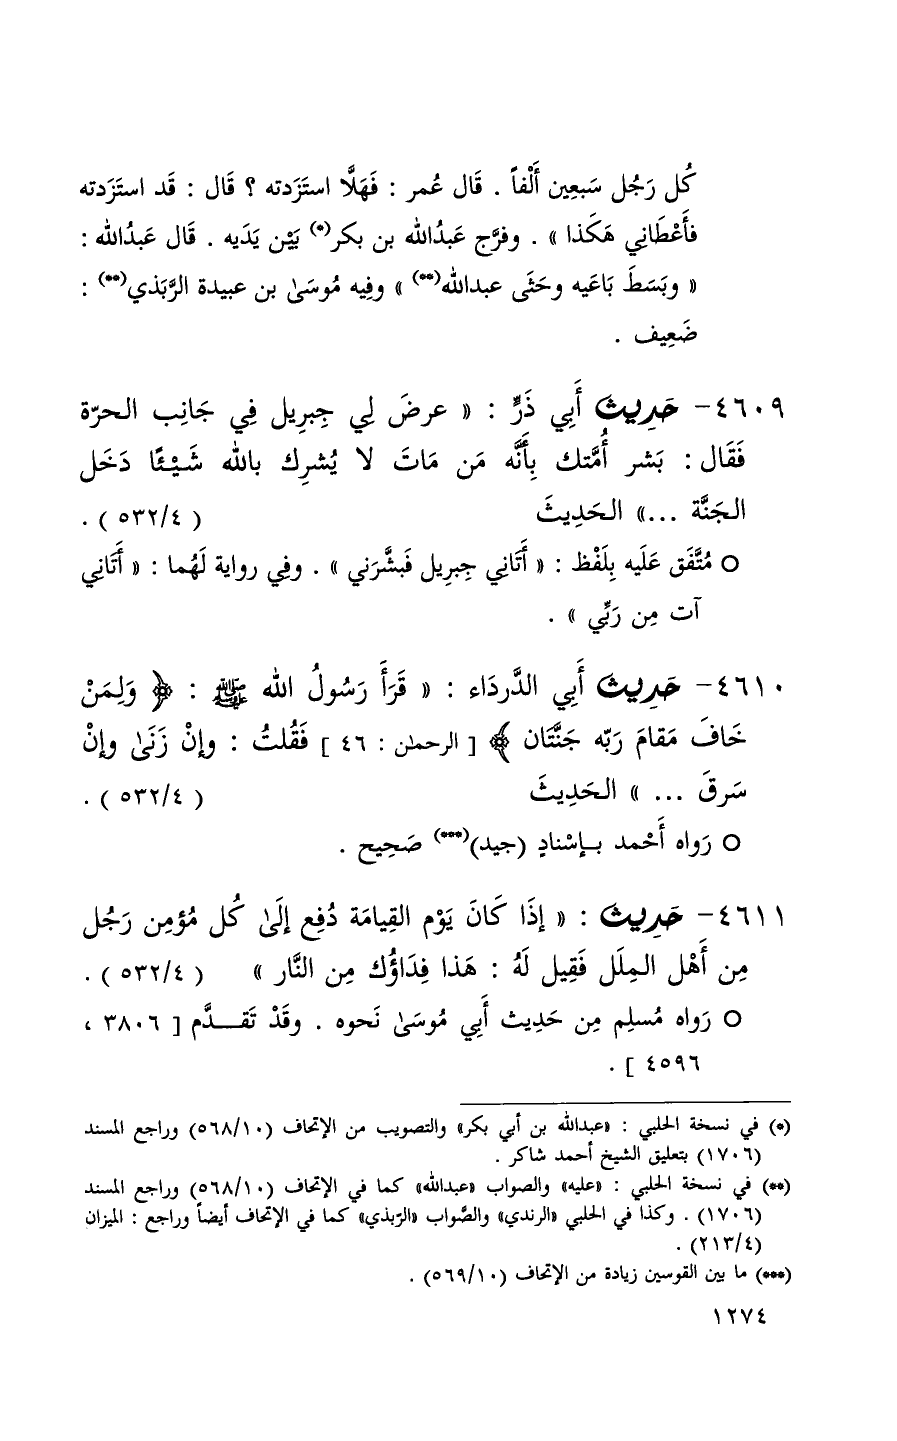 كُل رَجُل سَبعِين أَلْفاً . قَال عُمر : فَهَلَّا استَزَدته ؟ قَال : قَد استَزَدته
فأَعْطَانِي هَكَذا » . وفرَّج عَبدُالله بن بكر(*) بَيْن يَدَيه . قَال عَبدُالله :
« وبَسَطَ بَاعَيه وحَثَى عبدالله(**) » وفِيه مُوسَىٰ بن عبيدة الرَّبَذي(**) :
ضَعِيف .
٤٦٠٩- حَدِيث أَبِي ذَرٍّ : « عرضَ لِي جِبرِيل فِي جَانِب الحرّة
فَقَال : بَشر أُمَّتك بِأَنَّه مَن مَاتَ لا يُشرِك بالله شَيْئًا دَخَل
الجَنَّة ...» الحَدِيثَ ( ٥٣٢/٤ ) .
○ مُتَّفَق عَلَيه بِلَفْظ : « أَتَانِي جِبرِيل فَبشَّرَني » . وفِي رواية لَهُما : « أَتَانِي
آت مِن رَبِّي » .
٤٦١٠- حَدِيث أَبِي الدَّردَاء : « قَرَأَ رَسُولُ الله ﷺ : ﴿ وَلِمَنْ
خَافَ مَقامَ رَبّه جَنَّتَان ﴾ [ الرحمٰن : ٤٦ ] فَقُلتُ : وإِنْ زَنَىٰ وإِنْ
سَرقَ ... » الحَدِيثَ ( ٥٣٢/٤ ) .
○ رَواه أَحْمد بـإسْنادٍ (جيد)(***) صَحِيح .
٤٦١١- حَدِيث : « إِذَا كَانَ يَوْم القِيامَة دُفِع إِلَىٰ كُل مُؤمِن رَجُل
مِن أَهْل المِلَل فَقِيل لَهُ : هَذا فِدَاؤُك مِن النَّار » ( ٥٣٢/٤ ) .
○ رَواه مُسلِم مِن حَدِيث أَبِي مُوسَىٰ نَحوه . وقَدْ تَقـــدَّم [ ٣٨٠٦ ،
٤٥٩٦ ] .
(*) في نسخة الحلبي : «عبدالله بن أبي بكر» والتصويب من الإتحاف (٥٦٨/١٠) وراجع المسند
(١٧٠٦) بتعليق الشيخ أحمد شاكر .
(**) في نسخة الحلبي : «عليه» والصواب «عبدالله» كما في الإتحاف (٥٦٨/١٠) وراجع المسند
(١٧٠٦) . وكذا في الحلبي «الرندي» والصَّواب «الرّبذي» كما في الإتحاف أيضاً وراجع : الميزان
(٢١٣/٤) .
(***) ما بين القوسين زيادة من الإتحاف (٥٦٩/١٠) .
١٢٧٤